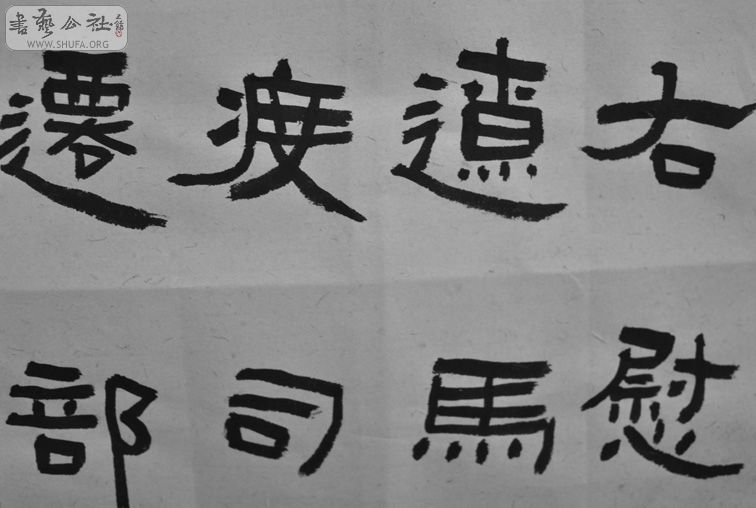 右慰
遺馬
司
遷部
書藝公社
WWW.SHUFA.ORG